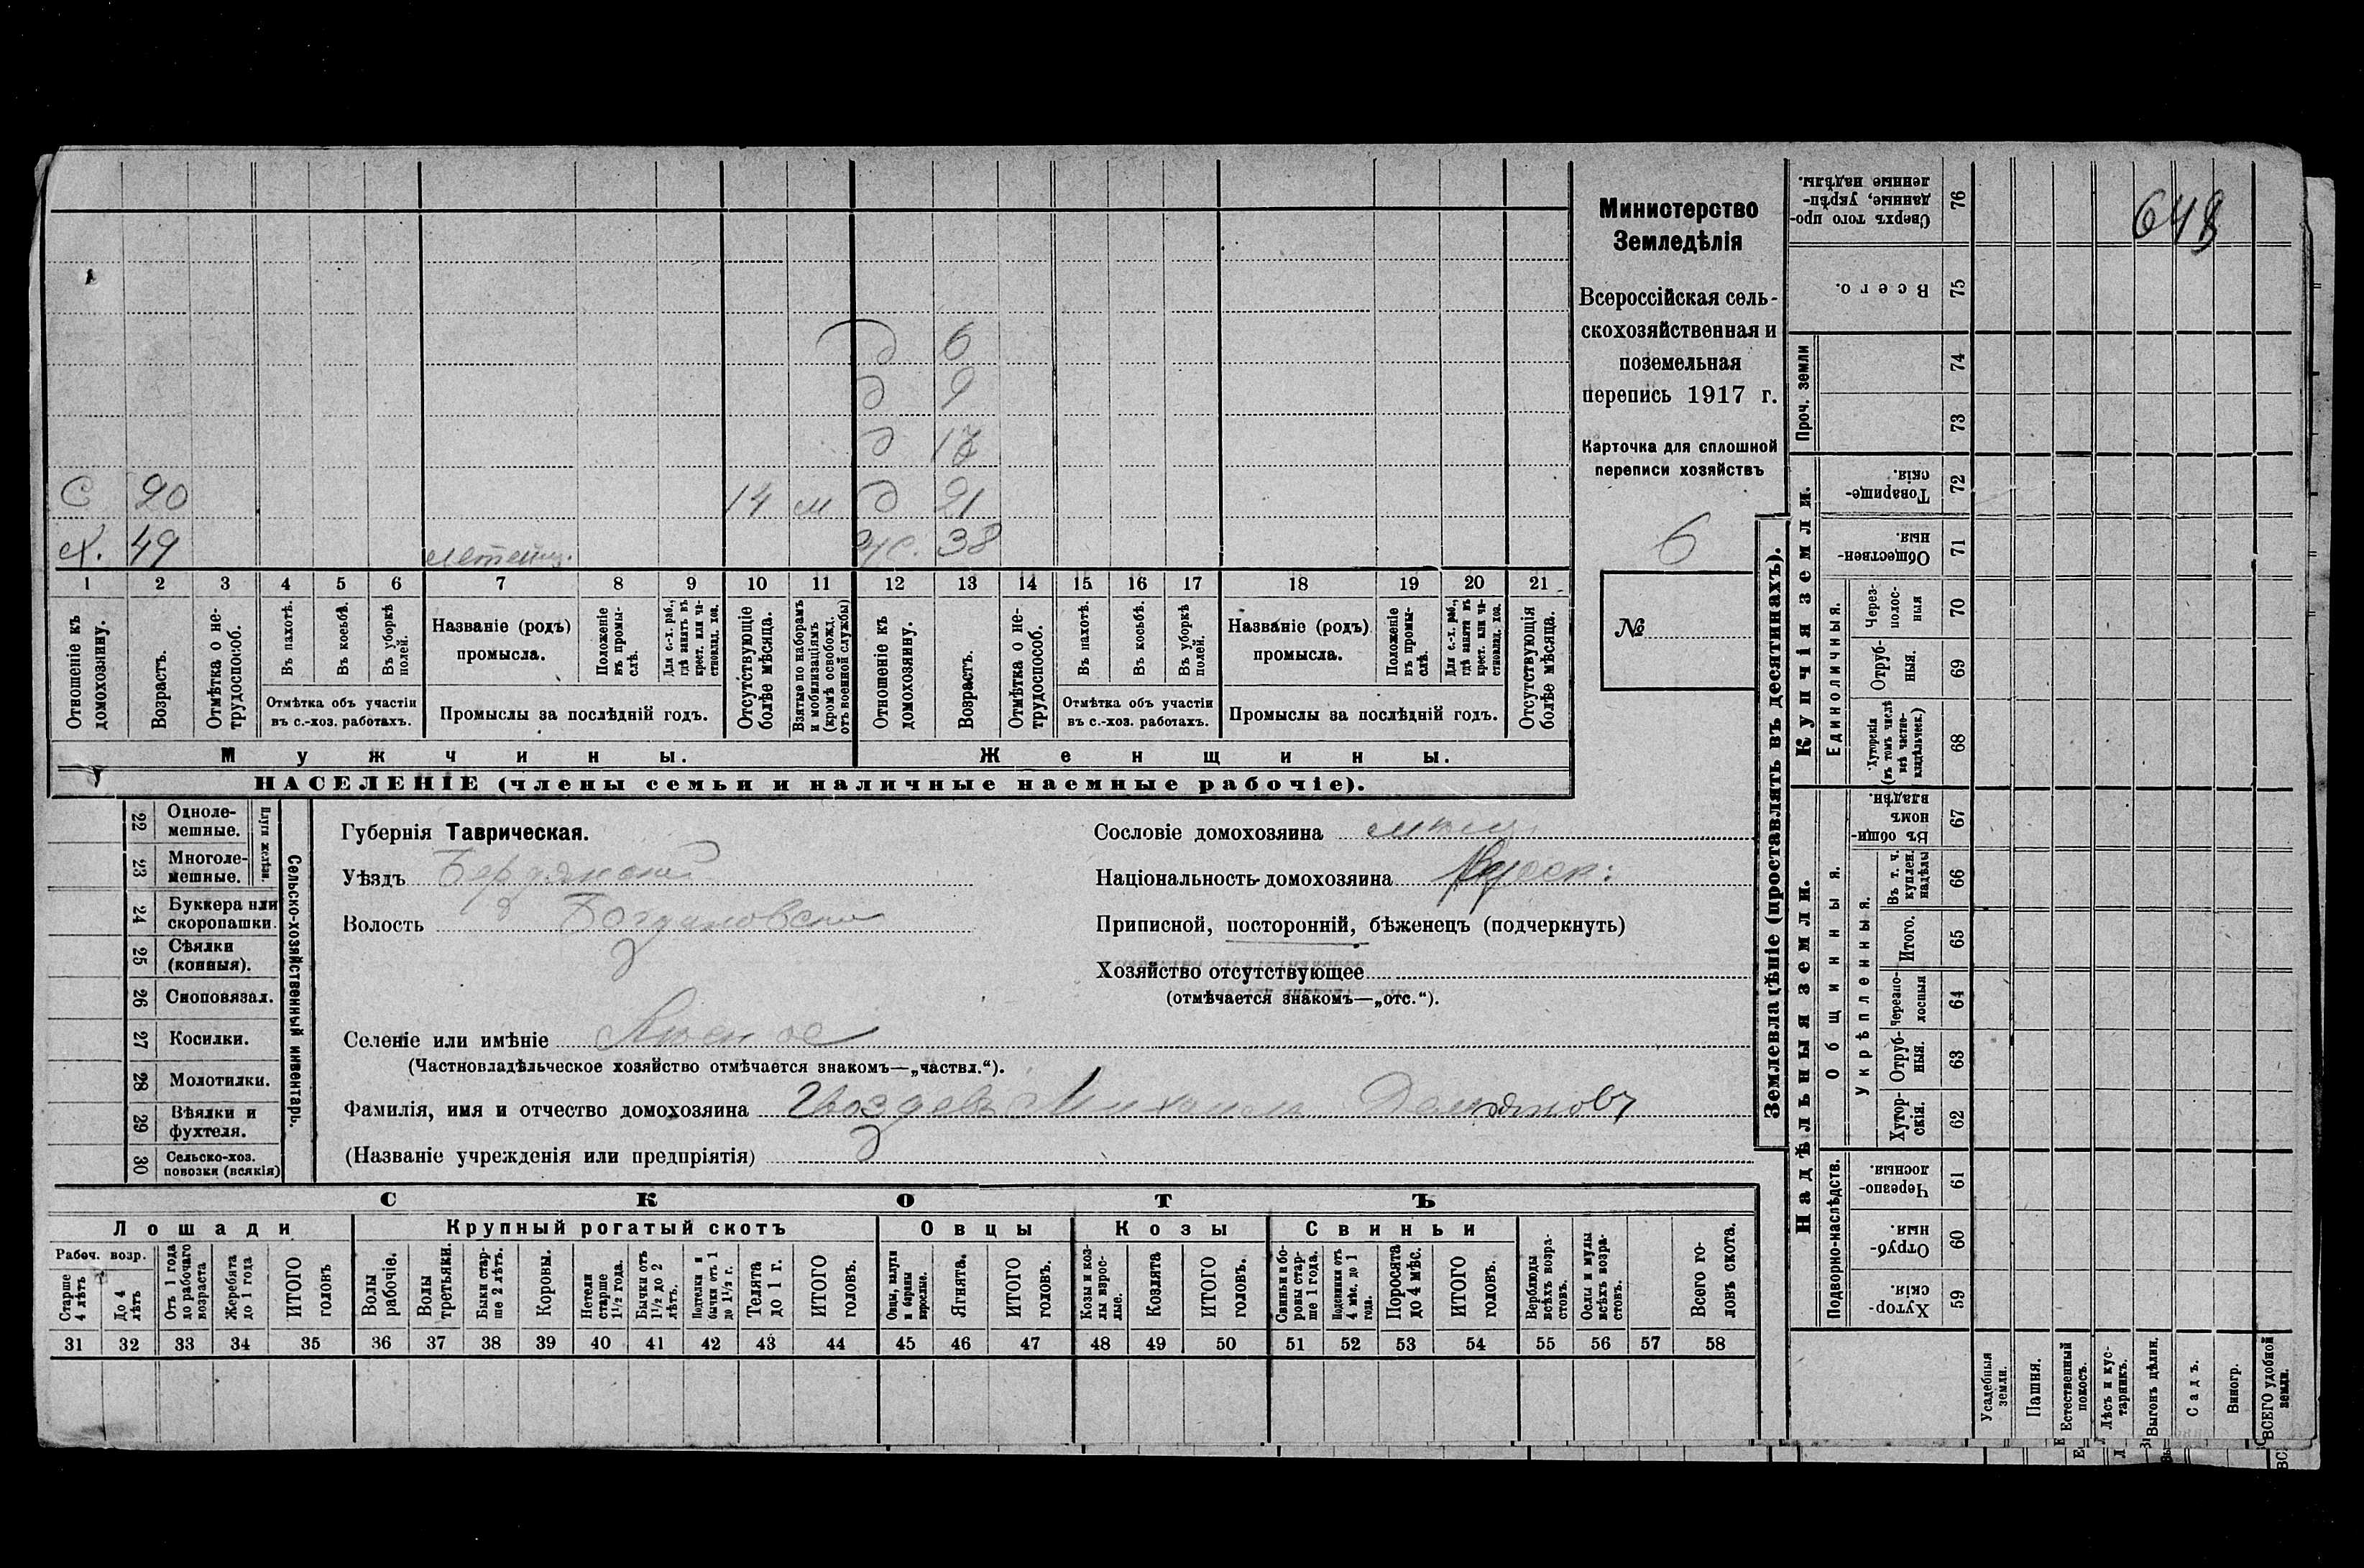 Министерство
Земледѣлія
Всероссійская сель-
скохозяйственная и
поземельная
перепись 1917 г.
Карточка для сплошной
переписи хозяйствъ
6
№
648
д 6
д 9
д 17
С 20 14 м д 21
Х. 49 Ж. 38
1 2 3 4 5 6 7 8 9 10 11 12 13 14 15 16 17 18 19 20 21
Отношеніе къ домохозяину.
Возрастъ.
Отмѣтка о не-трудоспособ.
Въ пахотѣ.
Въ косьбѣ.
Въ уборкѣ полей.
Отмѣтка объ участіи
въ с.-хоз. работахъ.
Названіе (родъ)
промысла.
Положеніе въ промы-слѣ.
Для с.-х. раб., гдѣ занятъ въ крест. или ча-стновлад. хоз.
Промыслы за послѣдній годъ.
Отсутствующіе болѣе мѣсяца.
Взятые по наборамъ и мобилизаціямъ (кромѣ освобожд. отъ военной службы)
Отношеніе къ домохозяину.
Возрастъ.
Отмѣтка о не-трудоспособ.
Въ пахотѣ.
Въ косьбѣ.
Въ уборкѣ полей.
Отмѣтка объ участіи
въ с.-хоз. работахъ.
Названіе (родъ)
промысла.
Положеніе въ промы-слѣ.
Для с.-х. раб., гдѣ занята въ крест. или ча-стновлад. хоз.
Промыслы за послѣдній годъ.
Отсутствующія болѣе мѣсяца.
Мужчины.
Женщины.
НАСЕЛЕНІЕ (члены семьи и наличные наемные рабочіе).
Сельско-хозяйственный инвентарь.
Плуги желѣзн.
22 Одноле-мешные.
23 Многоле-мешные.
24 Буккера или скоропашки.
25 Сѣялки (конныя).
26 Сноповязал.
27 Косилки.
28 Молотилки.
29 Вѣялки и фухтеля.
30 Сельско-хоз. повозки (всякія)
Губернія Таврическая.
Уѣздъ Бердянскій
Волость Богдановская
Селеніе или имѣніе
(Частновладѣльческое хозяйство отмѣчается знакомъ—„частвл.“).
Фамилія, имя и отчество домохозяина Гвоздевъ Михаилъ Демьяновъ
(Названіе учрежденія или предпріятія)
Сословіе домохозяина мѣщ.
Національность домохозяина Русск.
Приписной, посторонній, бѣженецъ (подчеркнуть)
Хозяйство отсутствующее
(отмѣчается знакомъ—„отс.“).
СКОТЪ
Лошади
Крупный рогатый скотъ
Овцы
Козы
Свиньи
Рабоч. возр.
Старше 4 лѣтъ
До 4 лѣтъ
Отъ 1 года до рабочаго возраста
Жеребята до 1 года
ИТОГО головъ
Волы рабочіе.
Волы третьяки.
Быки стар-ше 2 лѣтъ.
Коровы.
Нетели старше 1½ года.
Бычки отъ 1½ до 2 лѣтъ.
Подтелки и бычки отъ 1 до 1½ г.
Телята до 1 г.
ИТОГО головъ.
Овцы, валухи и бараны взрослые.
Ягнята.
ИТОГО головъ.
Козы и коз-лы взрос-лые.
Козлята
ИТОГО головъ.
Свиньи и бо-ровы стар-ше 1 года.
Подсвинки отъ 4 мѣс. до 1 года.
Поросята до 4 мѣс.
ИТОГО головъ.
Верблюды всѣхъ возра-стовъ.
Ослы и мулы всѣхъ возра-стовъ.
Всего го-ловъ скота.
31 32 33 34 35 36 37 38 39 40 41 42 43 44 45 46 47 48 49 50 51 52 53 54 55 56 57 58
Землевладѣніе (проставлять въ десятинахъ).
Надѣльныя земли.
Купчія земли.
Проч. земли
Подворно-наслѣдств.
Общинныя.
Укрѣпленныя.
Единоличныя.
59 Хутор-скія.
60 Отруб-ныя.
61 Черезпо-лосныя.
62 Хутор-скія.
63 Отруб-ныя.
64 Черезпо-лосныя
65 Итого.
66 Въ т. ч. куплен. надѣлы
67 Въ общи-номъ владѣн.
68 Хуторскія (въ томъ числѣ всѣ частно-владѣльческ.)
69 Отруб-ныя.
70 Через-полос-ныя
71 Обществен-ныя.
72 Товарище-скія.
73
74
75 Всего.
76 Сверхъ того про-данные, укрѣп-ленные надѣлы.
Усадебныя земли.
Пашня.
Естественный покосъ.
Лѣсъ и кус-тарникъ.
Выгонъ цѣлин.
Садъ.
Виногр.
ВСЕГО удобной земли.